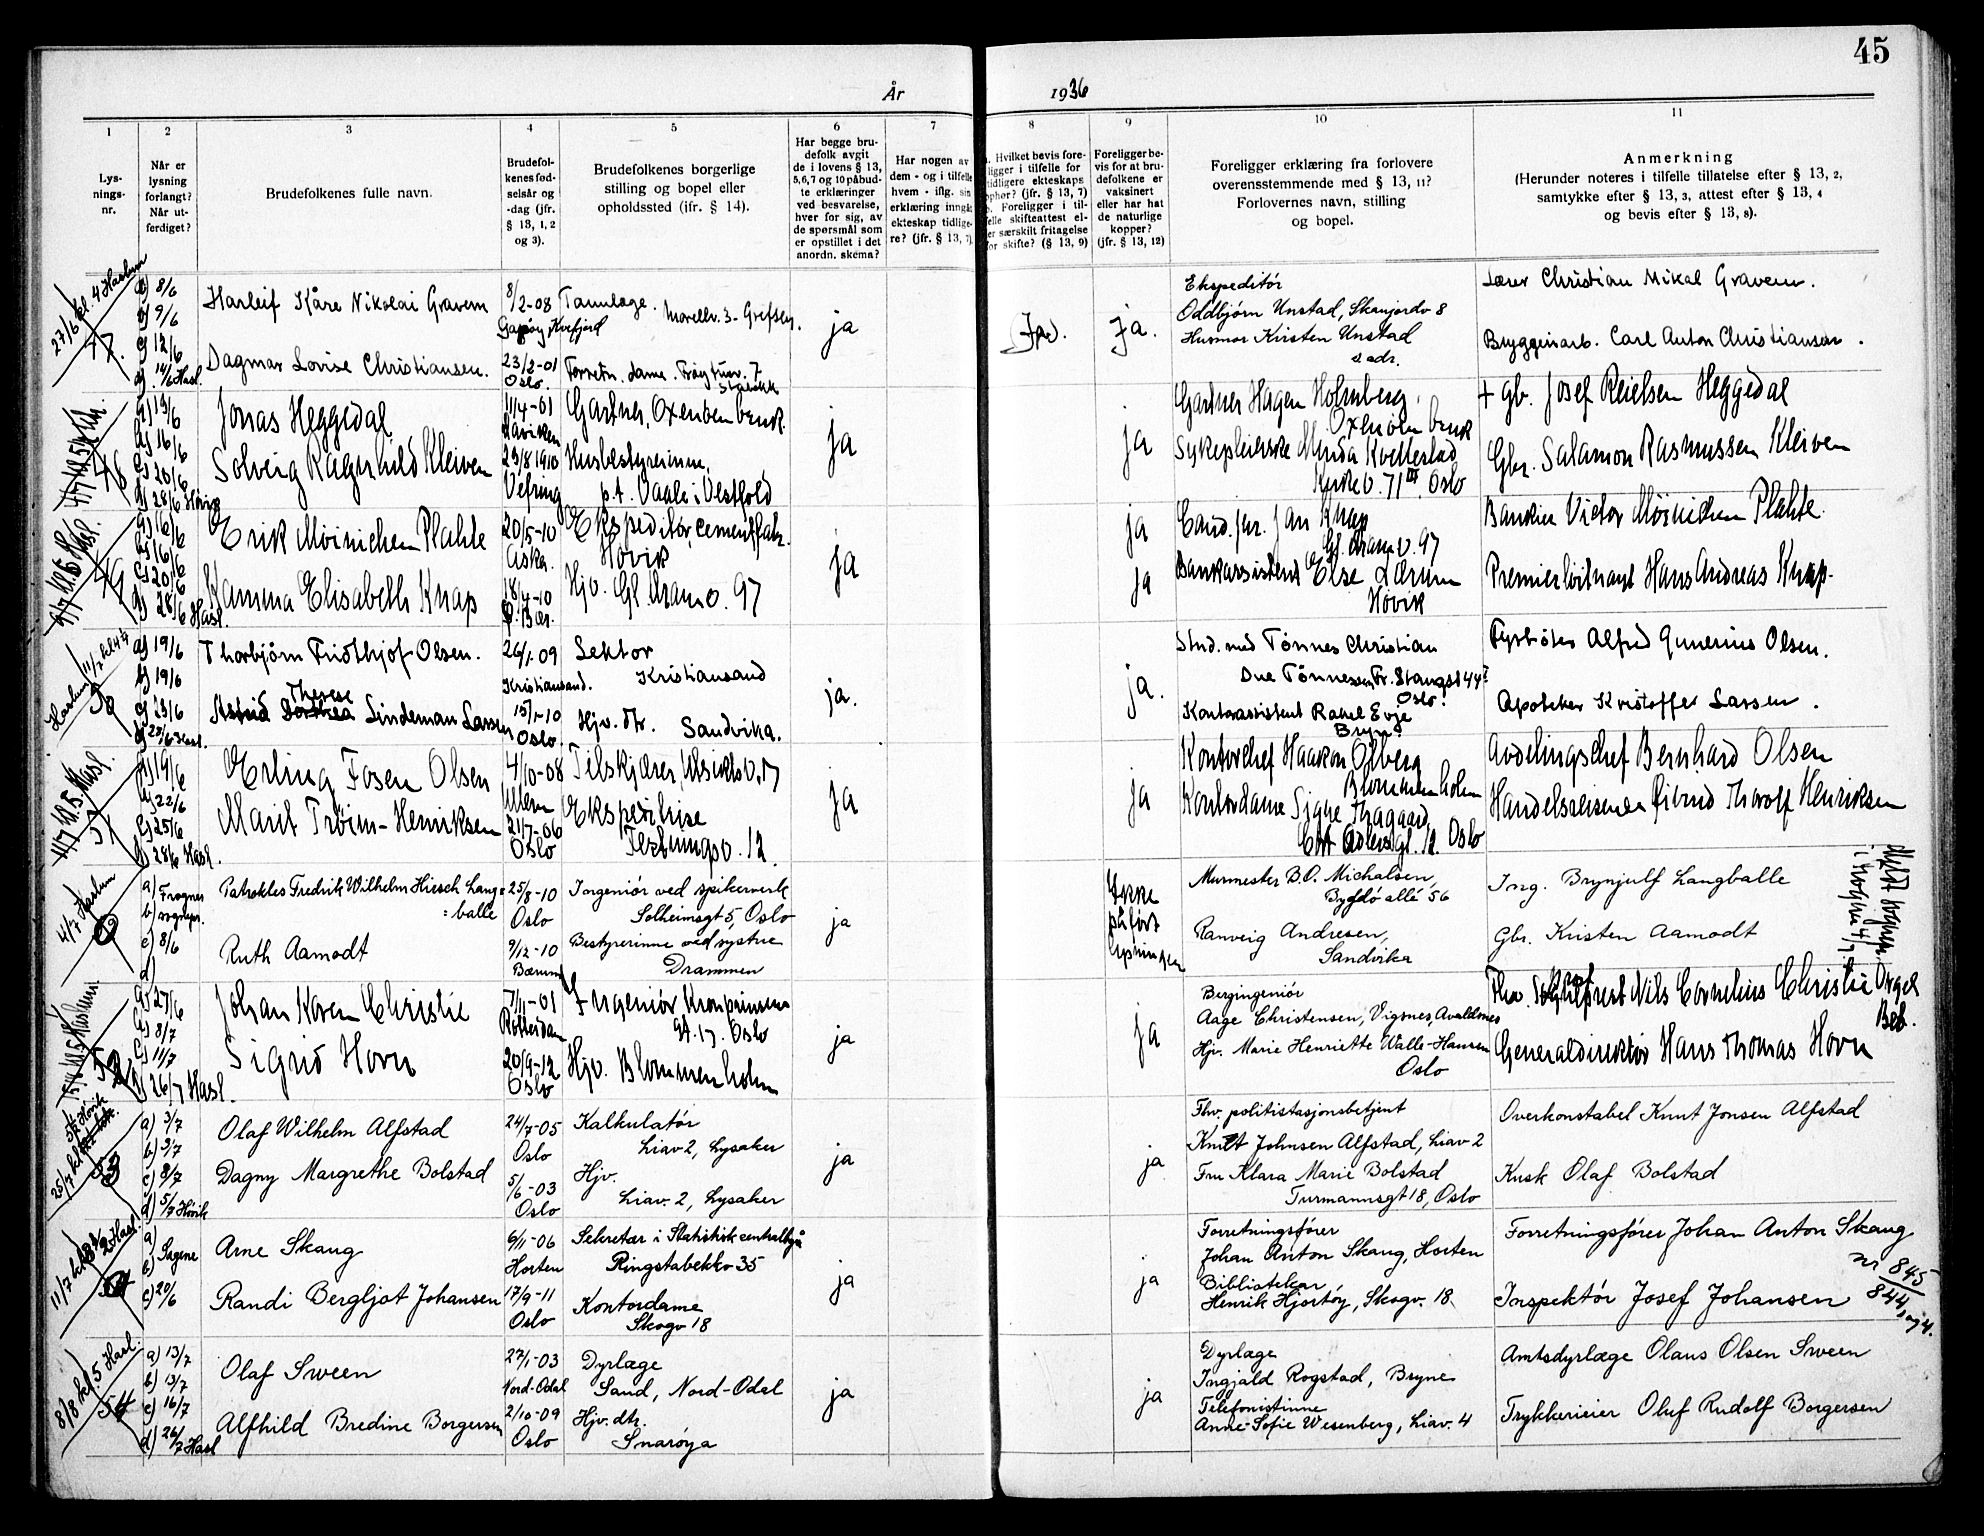 45
År 1936
1
2
3
4
5
6
7
8
9
10
11
Lys-
nings-
nr.
Når er
lysning
forlangt?
Når ut-
ferdiget?
Brudefolkenes fulle navn.
Brudefol-
kenes fød-
selsår og
-dag (jfr.
§ 13, 1, 2
og 3).
Brudefolkenes borgerlige
stilling og bopel eller
opholdssted (ifr. § 14).
Har begge bru-
defolk avgit
de i lovens § 13,
5,6,7 og 10 påbud-
te erklæringer
ved besvarelse,
hver for sig, av
de spørsmål som
er opstillet i det
anordn. skema?
Har nogen av
dem - og i tilfelle
hvem - iflg. sin
erklæring inngåt
ekteskap tidlige-
re? (jfr. § 13, 7).
Hvilket bevis fore-
ligger i tilfelle for
tidligere ekteskaps
ophør? (jfr. § 13, 7)
b. Foreligger i til-
felle skifteattest el-
ler særskilt fritagelse
for skifte? (§ 13, 9)
Foreligger be-
vis for at bru-
defolkene er
vaksinert
eller har hat
de naturlige
kopper?
(jfr. § 13, 12)
Foreligger erklæring fra forlovere
overensstemmende med § 13, 11?
Forlovernes navn, stilling
og bopel.
Anmerkning
(Herunder noteres i tilfelle tillatelse efter § 13, 2,
samtykke efter § 13, 3, attest efter § 13, 4
og bevis efter § 13, 8).
27/6 kl. 4 Haslum
a) 8/6
b) 9/6
c) 12/6
d) 14/6 Hasl.
Harleif Kåre Nikolai Gravem
8/2-08
Tannlæge. Morellv. 3 - Grefsen.
Dagmar Lovise Christiansen.
23/2-01
Oslo.
ja
ja.
Ekspeditør
Oddbjørn Unstad, Skanjordv 8
Husmor Kirsten Unstad
s. adr.
Lærer Christian Mikal Gravem.
Bryggeriarb. Carl Anton Christiansen.
b) 16/6
c) 20/6
d) 28/6 Høvik
Jonas Heggedal
11/4-01
Solveig Ragnhild Kleiven
23/8 1910
Vefring
Husbestyrerinne,
p.t. Vaale i Vestfold
ja
ja
Gartner Hagen Holmberg,
Sykepleierske Minda Kvellestad
71 III, Oslo
+ gb. Josef Reielsen Heggedal
Gbr. Salamon Rasmussen Kleiven
a) 16/6
b) 16/6
c) 20/6
d) 28/6 Hasl.
Erik Møinichen Plahte
20/5-10
Asker.
Ekspeditør, Cementfabr.
Høvik
Kamma Elisabeth Knap
18/4-10
Hjv. Gl. Dram.v. 97
ja
ja
ja
Cand. jur. Jan Knap
Gl. Dram.v. 97
Bankassistent Else Lærum
Høvik
Bankier Victor Møinichen Plahte.
Premierløitnant Hans Andreas Knap.
50
a) 19/6
b) 19/6
c) 23/6
Thorbjørn Fridthjof Olsen.
26/1-09
Kristiansand.
Sektor
Kristiansand
Therese
Astrid Lindeman Larsen
15/1-10
Oslo.
Hjv. dtr. Sandvika.
ja.
ja.
Stud. med Tønnes Christian
Due Tønnessen Fr. Stangsgt 44
Oslo.
Kontorassistent Rakel Evje
Bryn
Fyrbøter Alfred Gunerius Olsen.
Apoteker Kristoffer Larsen.
51
a) 19/6
b) 22/6
c) 25/6
d) 28/6 Hasl.
Erling Fosen Olsen
4/10-08
Ullern
Marit Trøim-Henriksen
21/7-06
Oslo
Ekspeditrise
ja
ja
Kontorchef Haakon Ølberg
Blommenholm
Kontordame Sigge Thagaard,
Cort Adelersgt. 12. Oslo
Avdelingschef Bernhard Olsen
Handelsreisende Eivind Thorolf Henriksen
4/7 Haslum
a) Frogner
b) sognepr.
c) 8/6
d)
Patrokles Fredrik Wilhelm Hirsch Lang-
=balle
25/8-10
Oslo
Ingeniør ved spikerverk
Solheimsgt 5, Oslo
Ruth Aamodt
9/12-10
Bærum
Bestyrerinne ved systue
Drammen
ja
Ikke
påført
lysningen
Murmester B.O. Michalsen,
Bygdø allé 56
Ranveig Andresen,
Sandvika
Ing. Brynjulf Langballe
Gbr. Kristen Aamodt
52
a) 27/6
b) 8/7
c) 11/7
d) 26/7 Hasl.
Johan Koren Christie
7/11-01
Rotterdam
Ingeniør Kronprinsens
gt. 17. Oslo
Sigrid Horn
20/9-12
Oslo
Hjv. Blommenholm
ja
ja
Bergingeniør
Aage Christensen, Vigsnes, Avaldsnes
Hjv. Marie Henriette Walle-Hansen
Oslo
Nils Cornelius Christie
Generaldirektør Hans Thomas Horn
53
a) 3/7
b) 3/7
c) 8/7
d) 5/7 Høvik
Olaf Wilhelm Alfstad
24/7-05
Oslo
Kalkulatør
Liav 2, Lysaker
Dagny Margrethe Bolstad
5/6-03
Oslo
Hjv.
Liav. 2, Lysaker
ja
ja
Fhv. politistasjonsbetjent
Knut Johnsen Alfstad, Liav 2
Fru Klara Marie Bolstad
Turmannsgt 18, Oslo
Overkonstabel Knut Jonsen Alfstad
Kusk Olaf Bolstad
a)
b) Sagene
c) 20/6
Arne Skaug
6/11-06
Horten
Sekretær i Statistisk centralbyrå
Ringstabekkv 35
Randi Bergljot Johansen
17/9-11
Oslo
Kontordame
Skogv 18
ja
ja
Forretningsfører
Johan Anton Skaug, Horten
Bibliotekar
Henrik Hjartøy, Skogv. 18.
Forretningsfører Johan Anton Skaug
nr 845
844
Inspektør Josef Johansen
8/8 kl. 5 Hasl.
54
a) 13/7
b) 13/7
c) 16/7
d) 26/7 Hasl
Olaf Sveen
27/1-03
Nord-Odal
Dyrlæge
Sand, Nord-Odal
Alfhild Bredine Borgersen
2/10-09
Oslo
Hjv. dtr.
Snarøya
ja
ja
Dyrlæge
Ingjald Rogstad, Bryne
Telefonistinne
Anne-Sofie Wesenberg, Liav. 4
Amtsdyrlæge Olaus Olsen Sveen
Trykkerieier Oluf Rudolf Borgersen